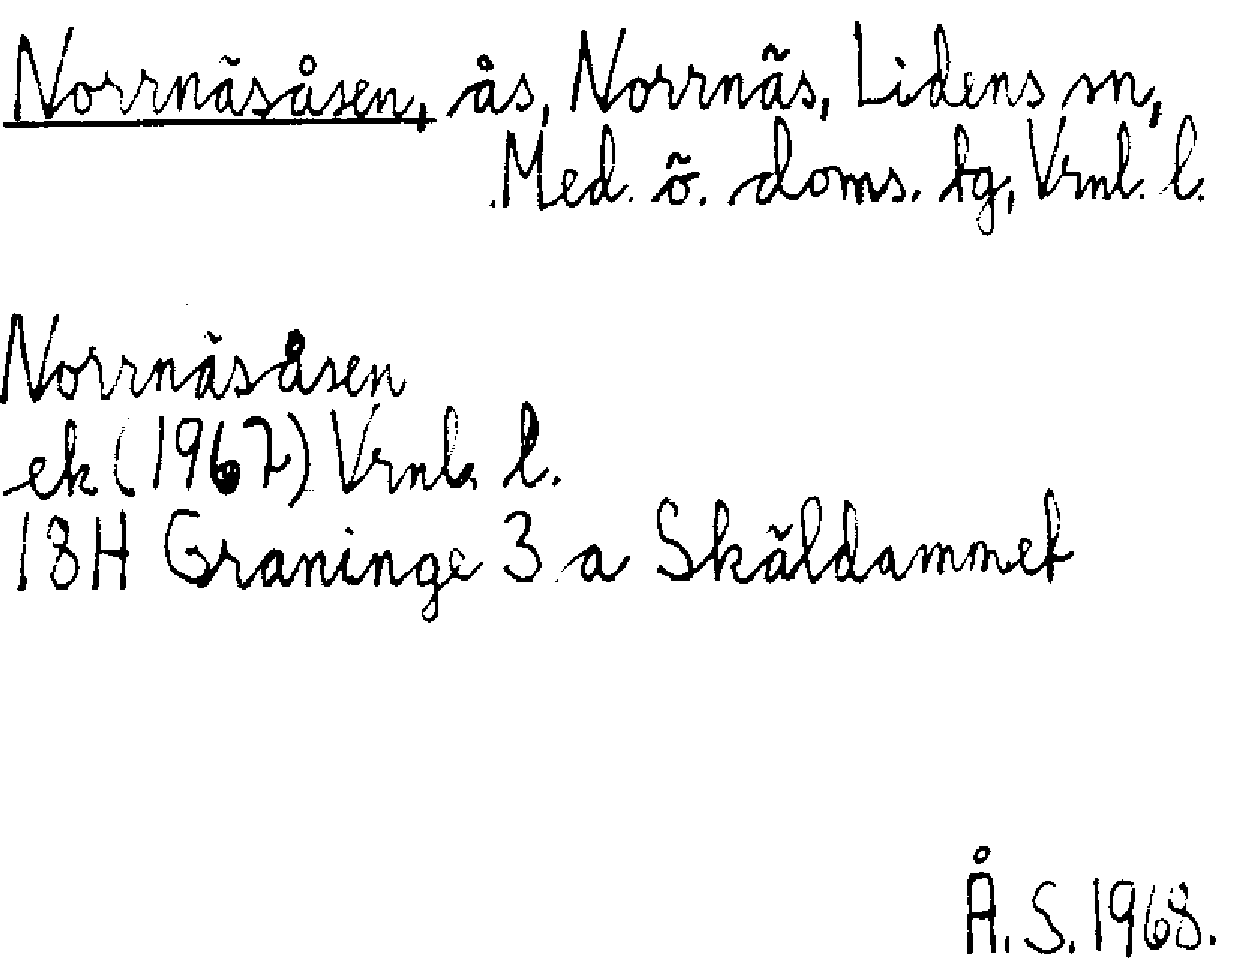 Norrnäsåsen, ås, Norrnäs, Lidens sn,
Med. ö. doms. tg, Vrnl. l.
Norrnäsåsen
ek (1967) Vrnl. l.
18H Graninge 3 a Skäldammet
Å. S. 1968.